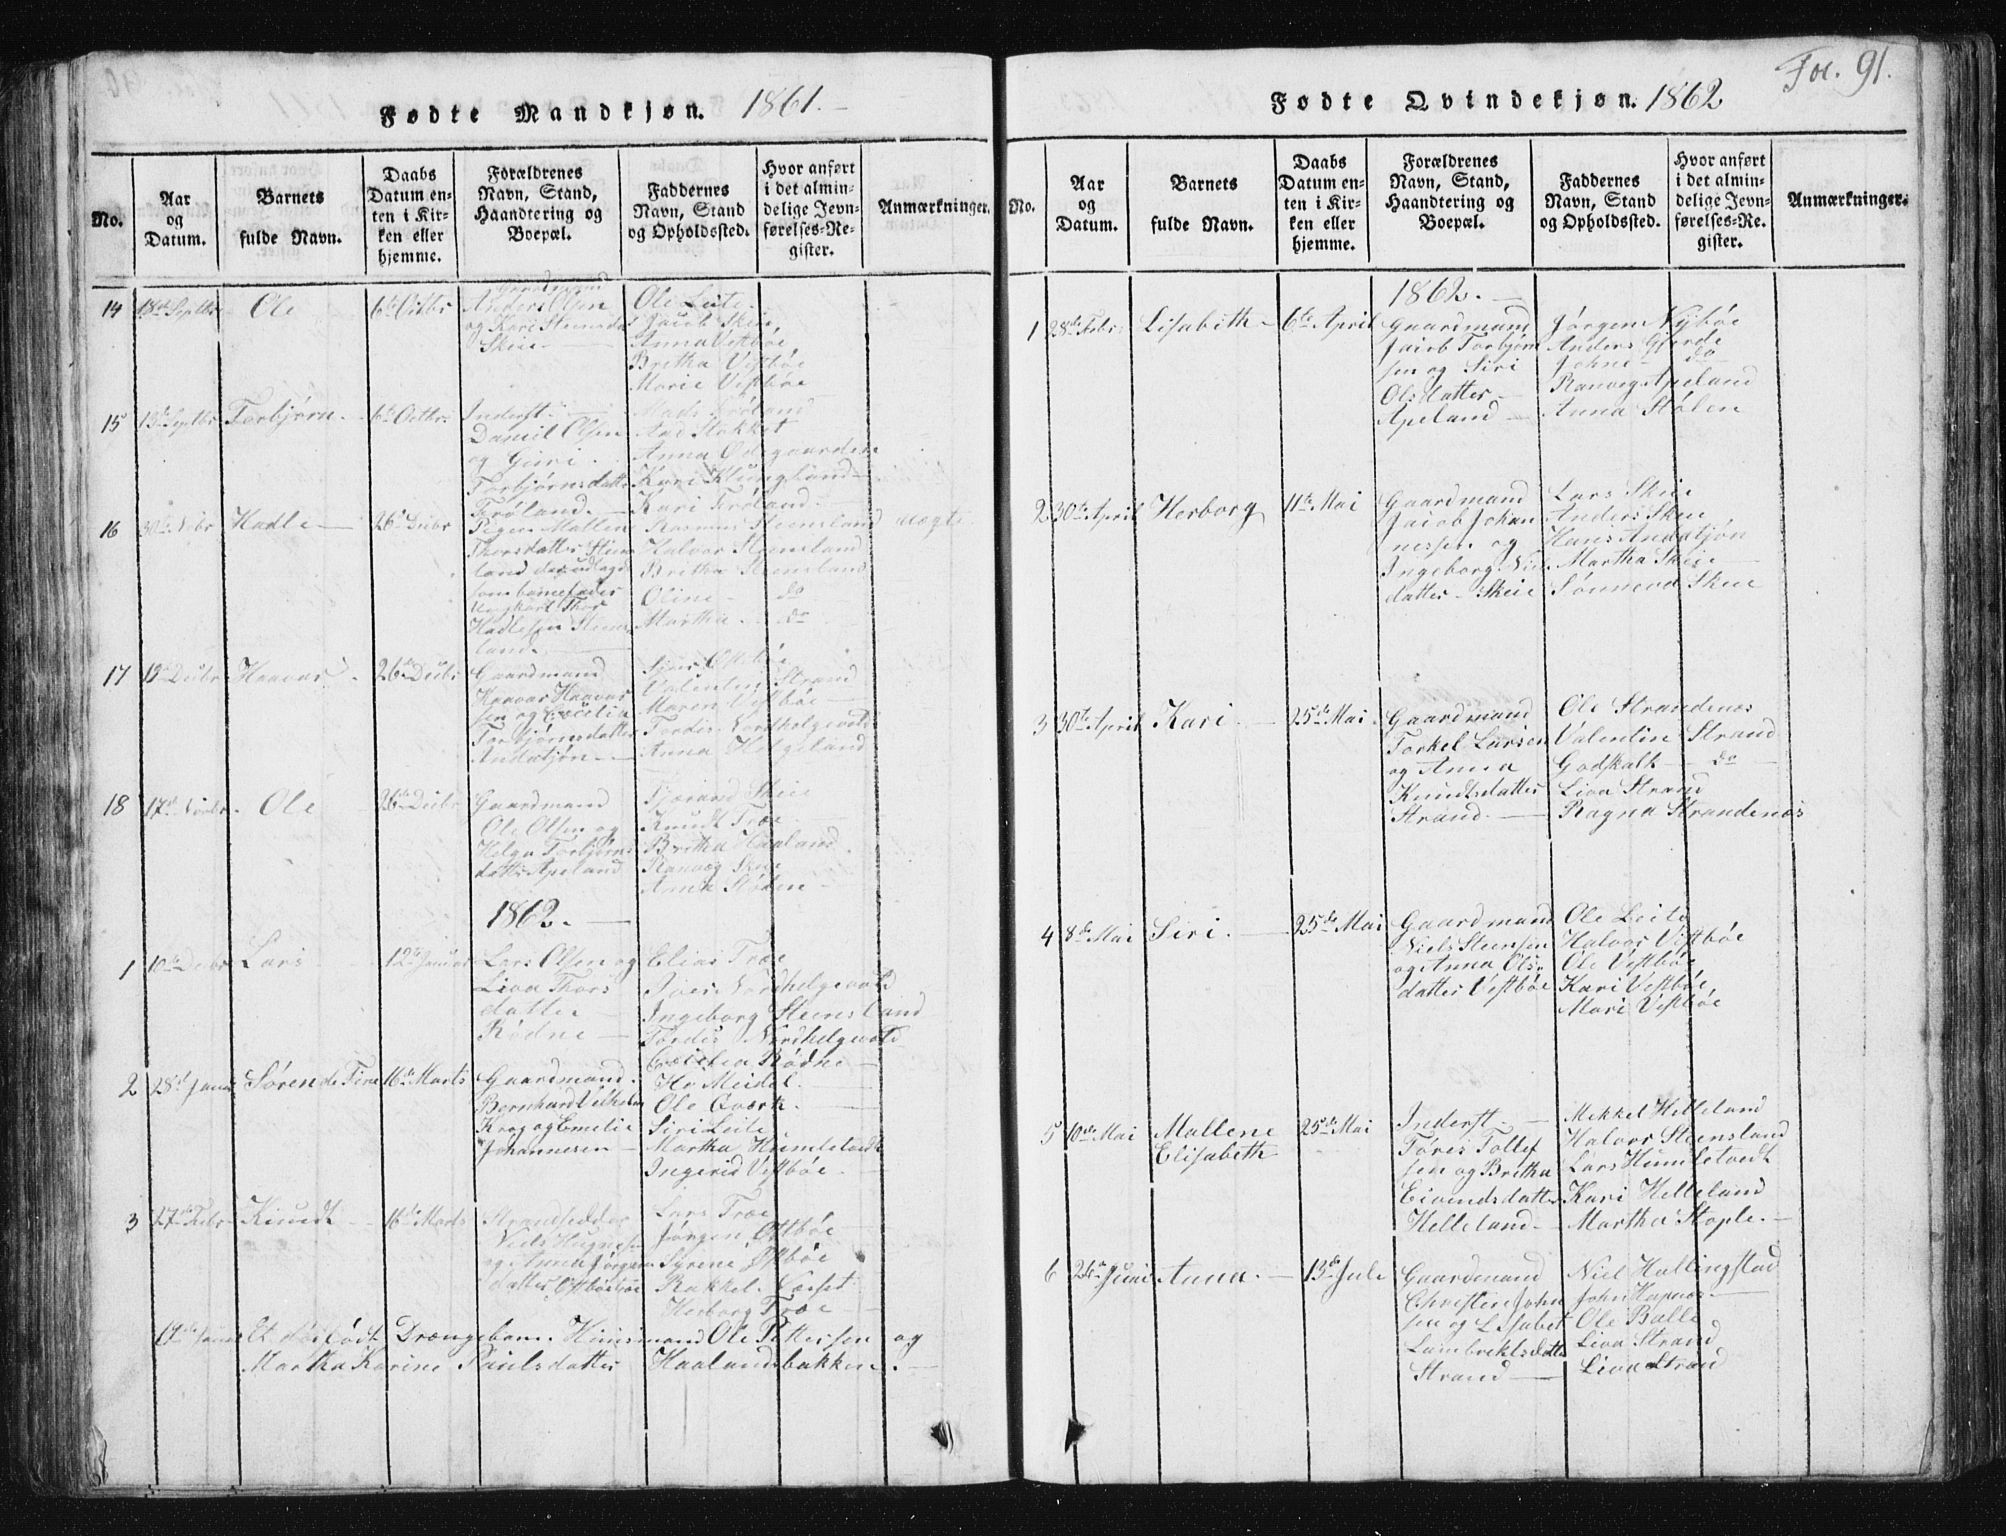 Fødte Mandkjøn. 1861.
No.
Aar og Datum.
Barnets fulde Navn.
Daabs Datum enten i Kirken eller hjemme.
Forældrenes Navn, Stand, Haandtering og Boepæl.
Faddernes Navn, Stand og Opholdssted.
Hvor anført i det almindelige Jevnførelses-Register.
Anmærkninger.
14
Ole
Anders Olsen
Skeie
Ole Leite.
Jacob Skeie,
Anna Vestbøe
Britha Vestbøe
Marie Vestbøe
15
Torbjørn.
Inderst
Daniel Olsen
og Guri
Torbjørnsdatter
Frøland.
Mads Frøland
Anna Ødegaarden
Kari Klungland
Kari Frøland
16
Hadle
26
Pigen Mallene
Thorsdatter Steens
land
som barnefader
Ungkarl Thor
Hadlesen Steens
land.
Rasmus Steensland
Halvor Steensland
Britha Steensland
Oline do
Martha do
uægte
17
Haavar
26 Decbr
Gaardmand
Haavar Haavar
sen og Cecilia
Torbjørnsdatter
Andatjøn
Valentin Strand
Maren Vestbøe
Tordis Nordhelgevold
Anna Helgeland
18
Ole
26 Decbr
Gaardmand
Ole Olsen og
Helga Torbjørns
datter Apeland
Fjærand Skeie
Knudt Træe
Britha Haaland
Ranveg Skeie
Anna Stølen
1862.
1
Lars
12te Januar
Lars Olsen og
Liva Thors
datter
Rødne
Elias Træe
Ingeborg Steensland
Tordis Nordhelgevold
Cecilia Rødne
2
28de Januar
Søren de Fine
16de Marts
Gaardmand.
Bernhard Vilhelm
Krog og Emelie
Johannesen
Hr Meidel.
Ole Qværk.
Siri Leite
Martha Humletvedt
Ingerid Vestbøe
3
27de Febr
Knudt
16de Marts
Strandsidder
og Anna Jørgens
datter
Lars Træe
Jørgen Østbøe
Syrene Østbøe
Rakkel
Herborg Træe
Et dødfødt Drængebarn. Huusmand Ole Pettersen og
Martha Karine Paulsdatter Haalandsbakken.
Fol. 91.
Fødte Qvindekjøn. 1862
No.
Aar og Datum.
Barnets fulde Navn.
Daabs Datum enten i Kirken eller hjemme.
Forældrenes Navn, Stand, Haandtering og Boepæl.
Faddernes Navn, Stand og Opholdssted.
Hvor anført i det almindelige Jevnførelses-Register.
Anmærkninger.
1862.
1
28de Febr
Lisabeth
6te April
Gaardmand
Jacob Torbjørn
sen og Siri
Olsdatter
Apeland
Jørgen Nybøe
Anders Gjerde
Johne do
Ranveg Apeland
Anna Stølen
2
30te April
Herborg
11te Mai
Gaardmand
Jacob Johan
nessen og
Ingeborg Niels
datter Skeie
Lars Skeie
Anders Skeie
Hans Andatjøn
Martha Skeie
Sønneva Skeie
3
30te April
Kari
25de Mai
Gaardmand
Torkel Larsen
og Anna
Knudtsdatter
Strand.
Ole Strandenæs
Valentin Strand
Godskalk do
Liva Strand
Ragna Strandenæs
4
8de Mai
Siri.
25de Mai
Gaardmand
Niels Steensen
og Anna Ols
datter Vestbøe
Ole Leite
Halvor Vestbøe
Ole Vestbøe
Kari Vestbøe
Mari Vestbøe
5
10de Mai
Mallene
Elisabeth
25de Mai
Inderst
Tøres Tollef
sen og Britha
Eivendsdatter
Helleland
Mikkel Helleland
Halvor Steensland
Lars Humletvedt
Kari Helleland
Martha Stople.
6
Juni
Anna.
13de Jule
Gaardmand
Christen John
sen og Lisabet
Lambrektsdatter
Strand
Niel Hallingstad
John Hapnæs
Ole Balle
Liva Strand
Liva Strand